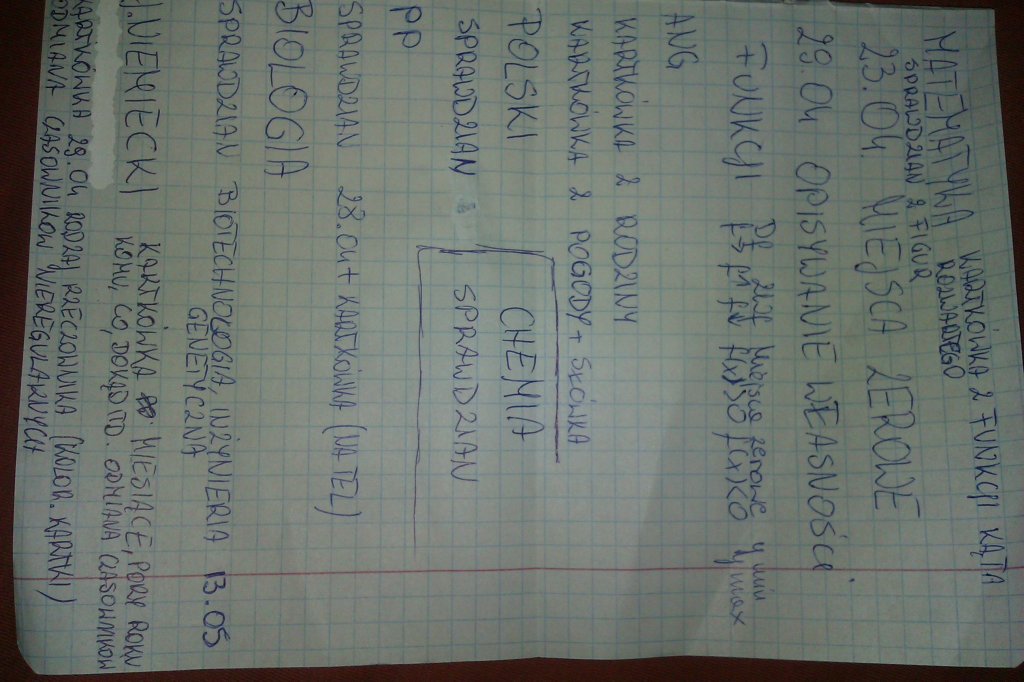 MATEMATYKA
KARTKÓWKA Z FUNKCJI KĄTA
ROZWARTEGO
SPRAWDZIAN Z FIGUR
23.04. MIEJSCA ZEROWE
29.04 OPISYWANIE WŁASNOŚCI
FUNKCJI Df ZWf miejsce zerowe y min
f↗ f→ f↘ f(x)>0 f(x)<0 y max
ANG
KARTKÓWKA Z RODZINY
KARTKÓWKA Z POGODY + SŁÓWKA
POLSKI
SPRAWDZIAN
CHEMIA
SPRAWDZIAN
PP
SPRAWDZIAN 28.04 + KARTKÓWKA (NA TEL)
BIOLOGIA
SPRAWDZIAN BIOTECHNOLOGIA, INŻYNIERIA 13.05
GENETYCZNA
J. NIEMIECKI
KARTKÓWKA MIESIĄCE, PORY ROKU
KOMU, CO, DOKĄD ITD. ODMIANA CZASOWNIKÓW
KARTKÓWKA 29.04 RODZAJ RZECZOWNIKA (KOLOR. KARTKI)
ODMIANA CZASOWNIKÓW NIEREGULARNYCH